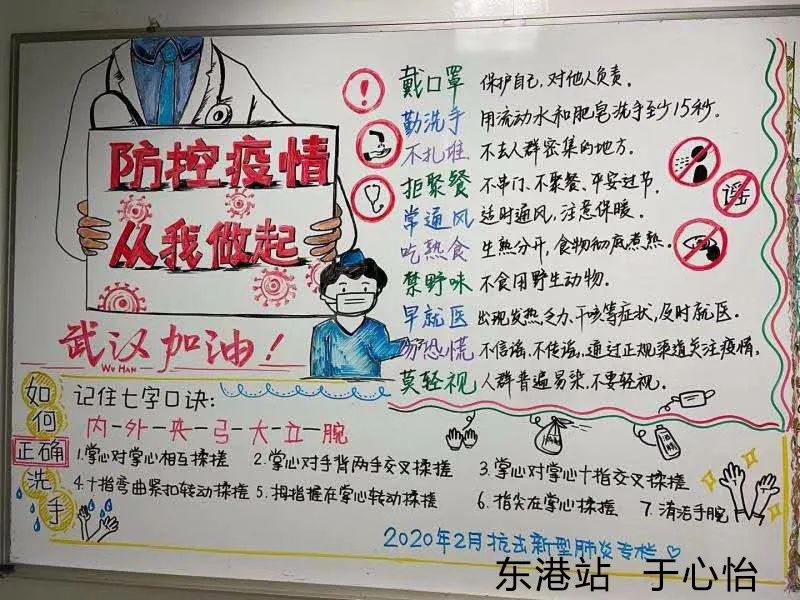 防控疫情
从我做起
武汉加油！
WU HAN
戴口罩 保护自己，对他人负责。
勤洗手 用流动水和肥皂洗手至少15秒。
不扎堆 不去人群密集的地方。
拒聚餐 不串门、不聚餐、平安过节。
常通风 适时通风，注意保暖。
吃熟食 生熟分开，食物彻底煮熟。
禁野味 不食用野生动物。
早就医 出现发热、乏力、干咳等症状，及时就医。
防恐慌 不信谣、不传谣，通过正规渠道关注疫情。
莫轻视 人群普遍易染，不要轻视。
谣
如何正确洗手
记住七字口诀：
内-外-夹-弓-大-立-腕
1.掌心对掌心相互揉搓 2.掌心对手背两手交叉揉搓 3.掌心对掌心十指交叉揉搓
4.十指弯曲紧扣转动揉搓 5.拇指握在掌心转动揉搓 6.指尖在掌心揉搓 7.清洁手腕
2020年2月抗击新型肺炎专栏
东港站 于心怡